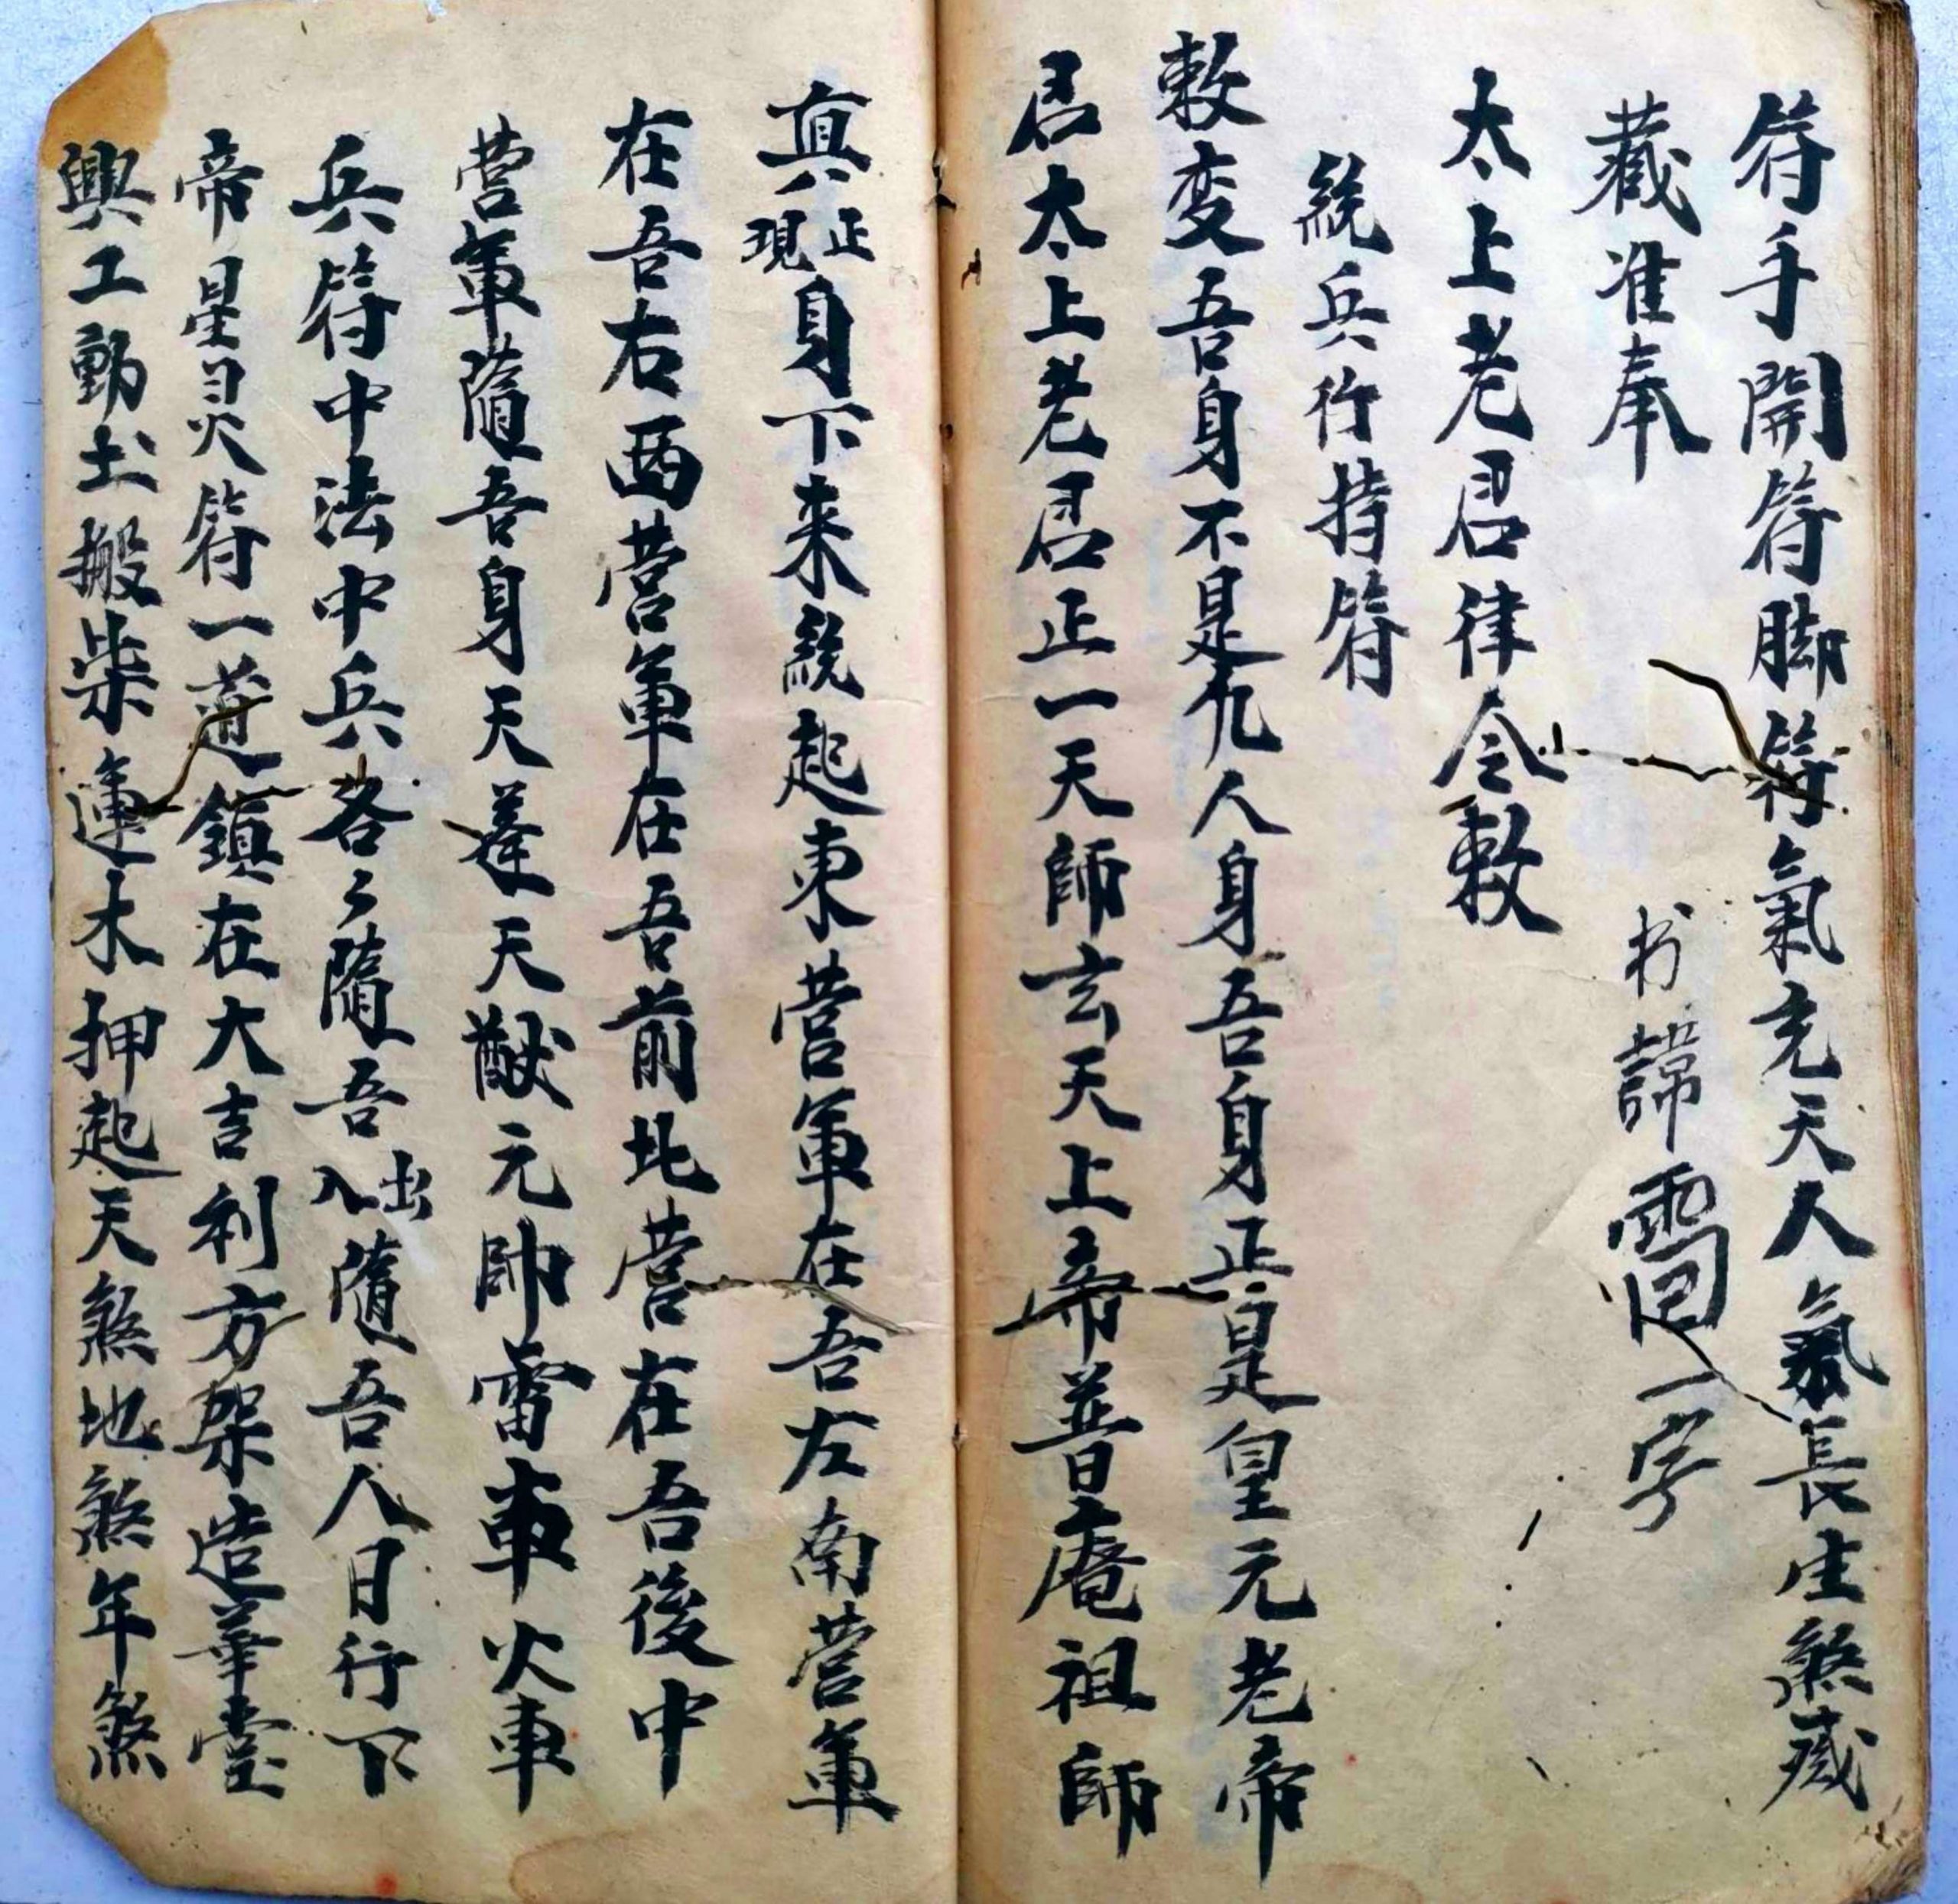 符手開符脚符符氣充天人氣長生煞藏
藏准奉 书諱 一字
太上老君律令敕
統兵行持符
敕变吾身不是凢人身吾身正是皇元老帝
君太上老君正一天師玄天上帝普庵祖師
真正現身下来統起東营軍在吾左南营軍
在吾右西营軍在吾前北营在吾後中
营軍隨吾身天蓬天猷元帥雷車火車
兵符中法中兵各々隨吾出入隨吾人日行下
帝星灵符一道鎮在大吉利方架造華臺
興工動土搬柴運木押起天煞地煞年煞